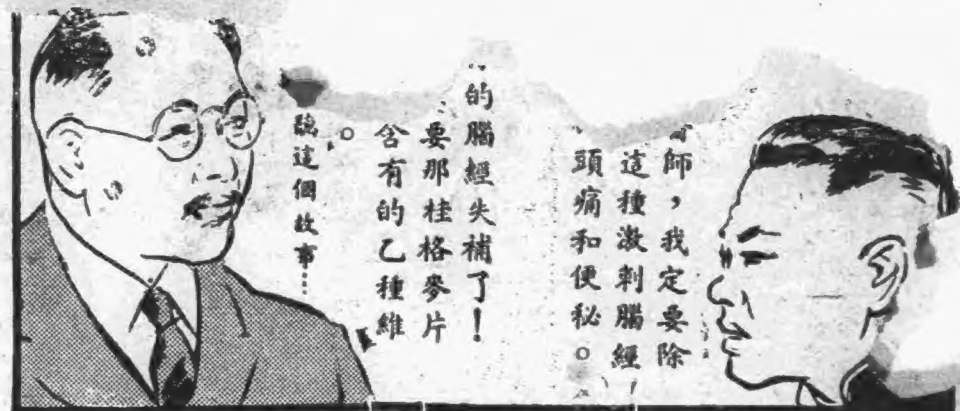 師，我定要除
這種激刺腦經
頭痛和便秘。
的腦經失補了！
要那桂格麥片
含有的乙種維
。
這個故事……